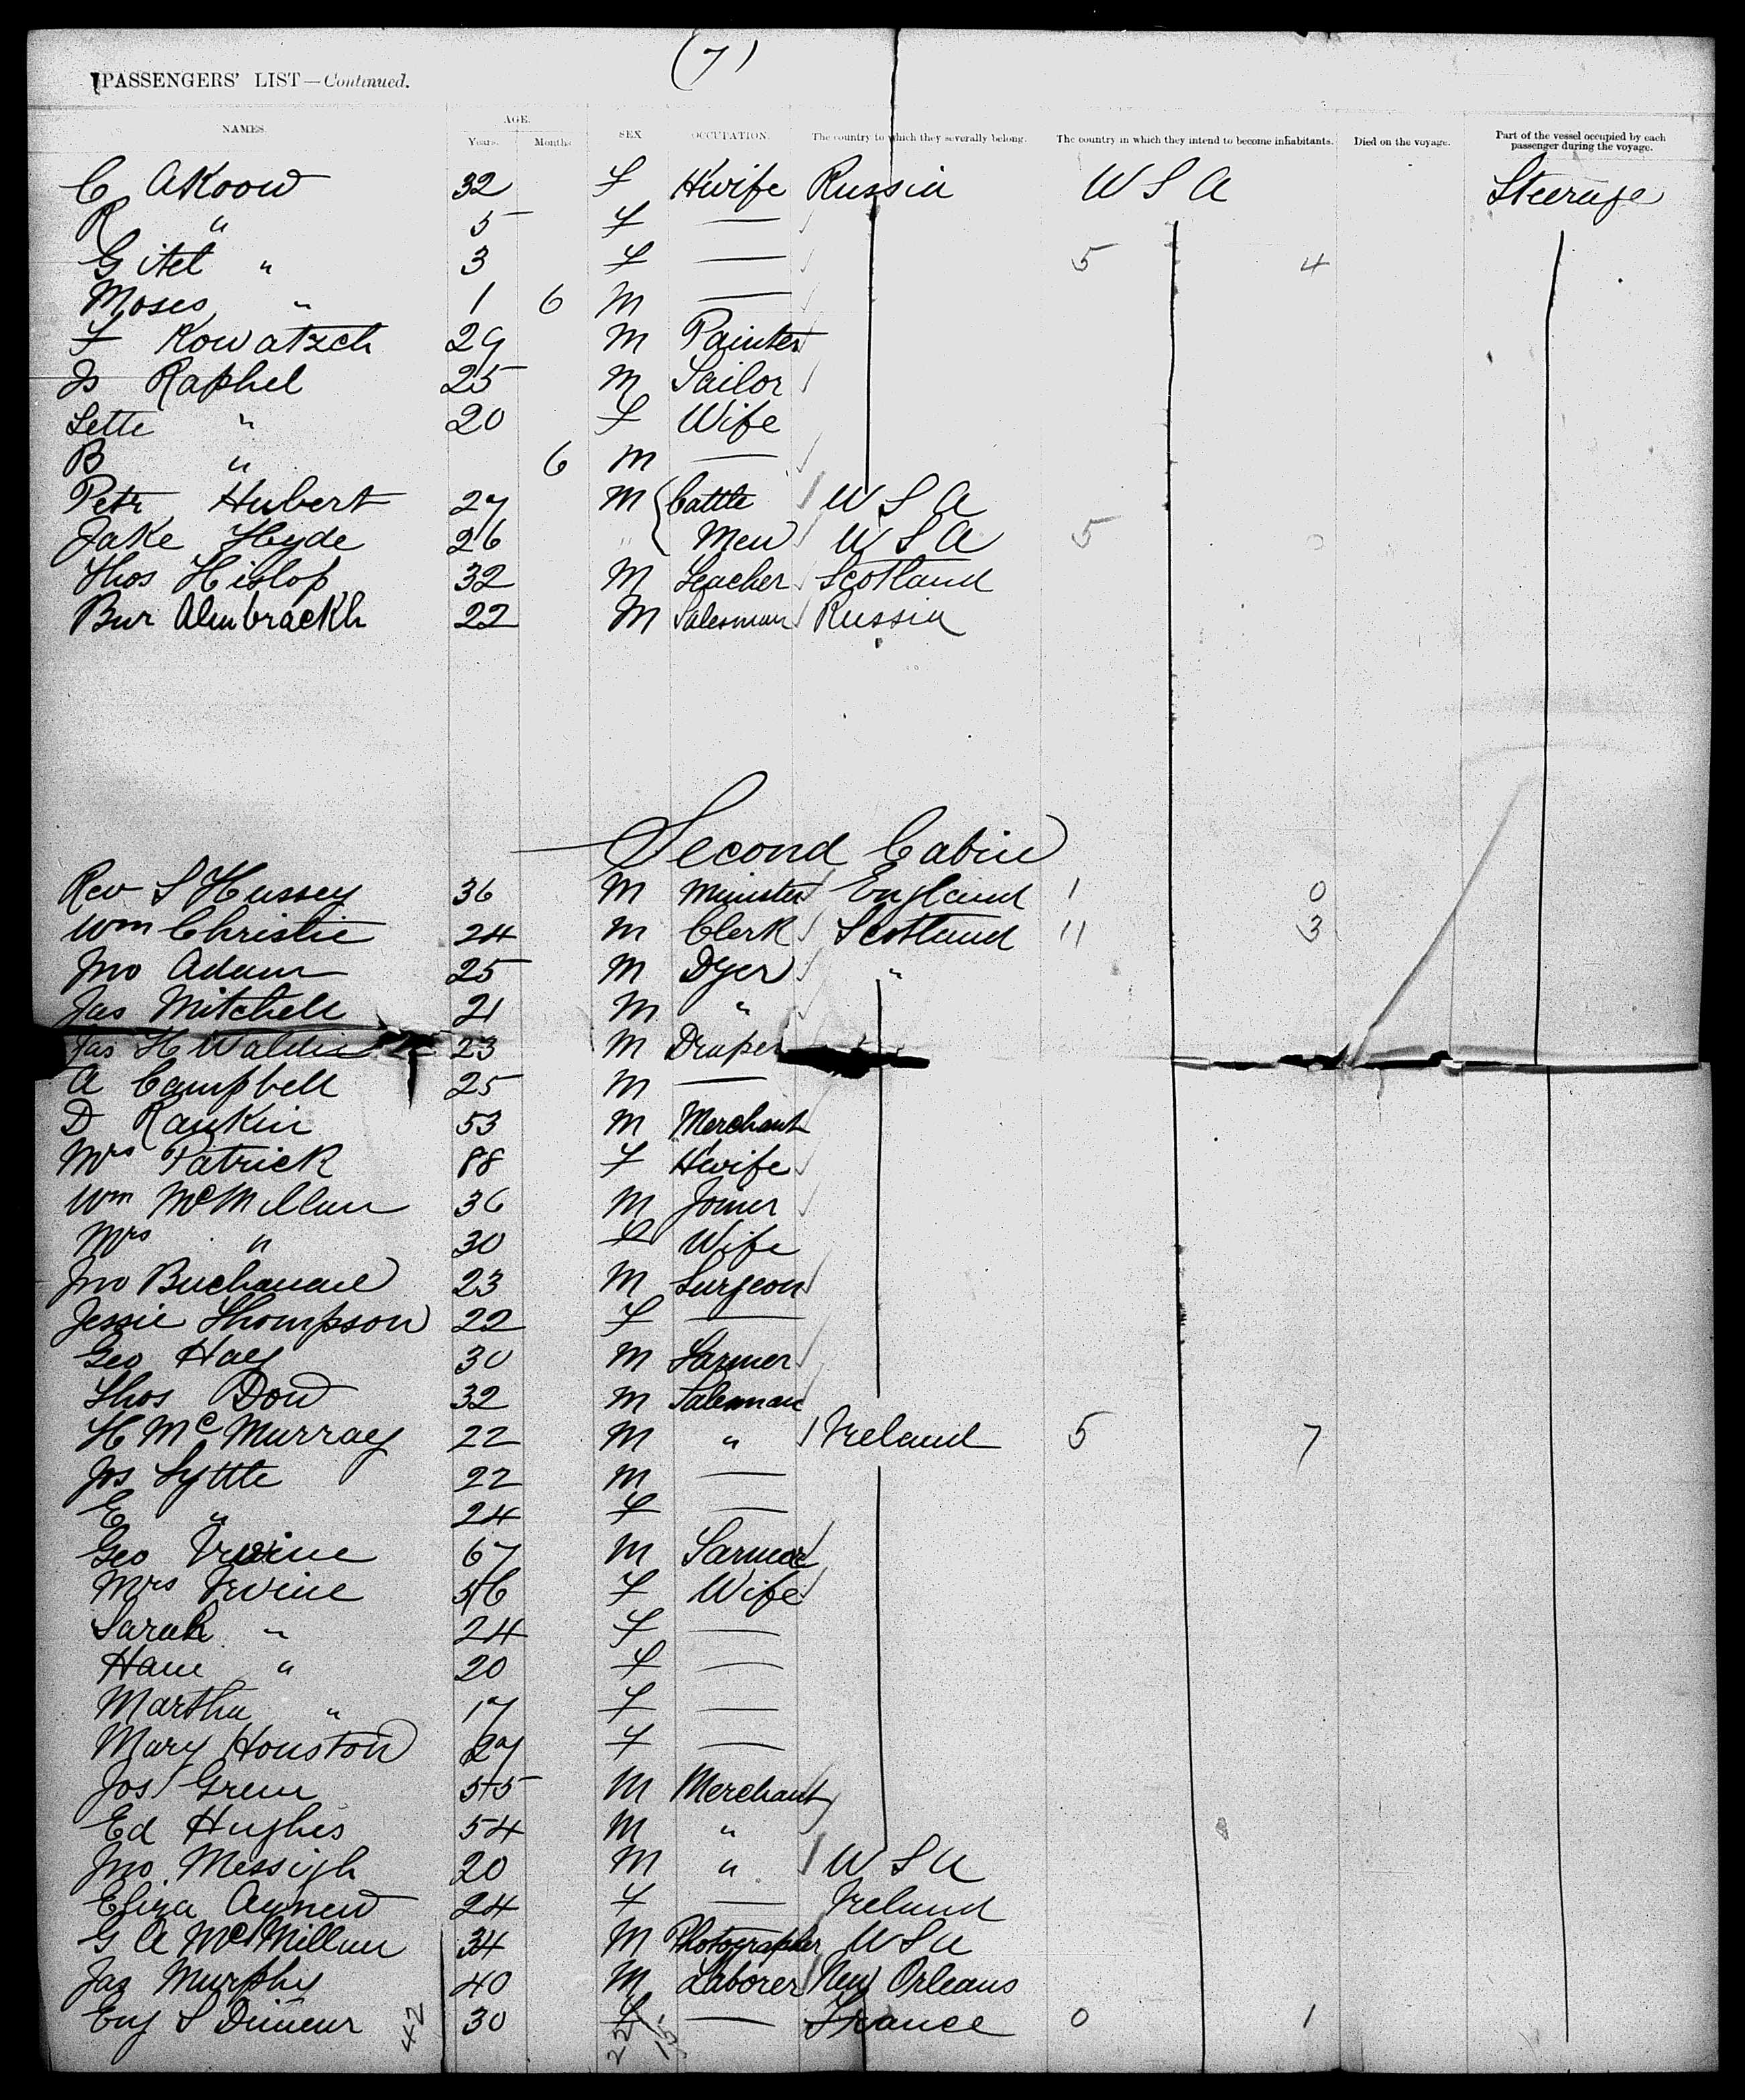 (7)
PASSENGERS' LIST—Continued.
NAMES. AGE. Years. Months. SEX OCCUPATION. The country to which they severally belong. The country in which they intend to become inhabitants. Died on the voyage. Part of the vessel occupied by each passenger during the voyage.
C Akoow 32 F Hwife Russia U S A Steerage
R " 5 F —
Gitel " 3 F — 5 4
Moses " 1 6 M —
F Kowatzch 29 M Painter
Js Raphel 25 M Sailor
Lette " 20 F Wife
B " 6 M —
Petr Hubert 27 M Cattle U S A
Jake Hyde 26 " Men U S A 5
Thos Hislop 32 M Teacher Scotland
Bur Alubrackh 22 M Salesman Russia
Second Cabin
Rev S Hussey 36 M Minister England 1 0
Wm Christie 24 M Clerk Scotland 11 3
Jno Adam 25 M Dyer "
Jas Mitchell 21 M "
Jas H 23 M Draper
A Campbell 25 M —
D Rankin 53 M Merchant
Mrs Patrick 88 F Hwife
Wm McMillan 36 M Joiner
Mrs " 30 F Wife
Jno Buchanan 23 M Surgeon
Jessie Thompson 22 F —
Geo Hay 30 M Farmer
Thos Dow 32 M Salesman
H McMurray 22 M " Ireland 5 7
Jos Lyttle 22 M —
E " 24 F —
Geo Irvine 67 M Farmer
Mrs Irvine 56 F Wife
Sarah " 24 F —
" 20 F —
Martha " 17 F —
Mary Houston 27 F —
Jos Green 55 M Merchant
Ed Hughes 54 M "
Jno Messigh 20 M " U S A
Eliza Agnew 24 F — Ireland
G A McMillan 34 M Photographer U S A
Jas Murphy 40 M Laborer New Orleans
Eug S 30 F — France 0 1
42 22 15